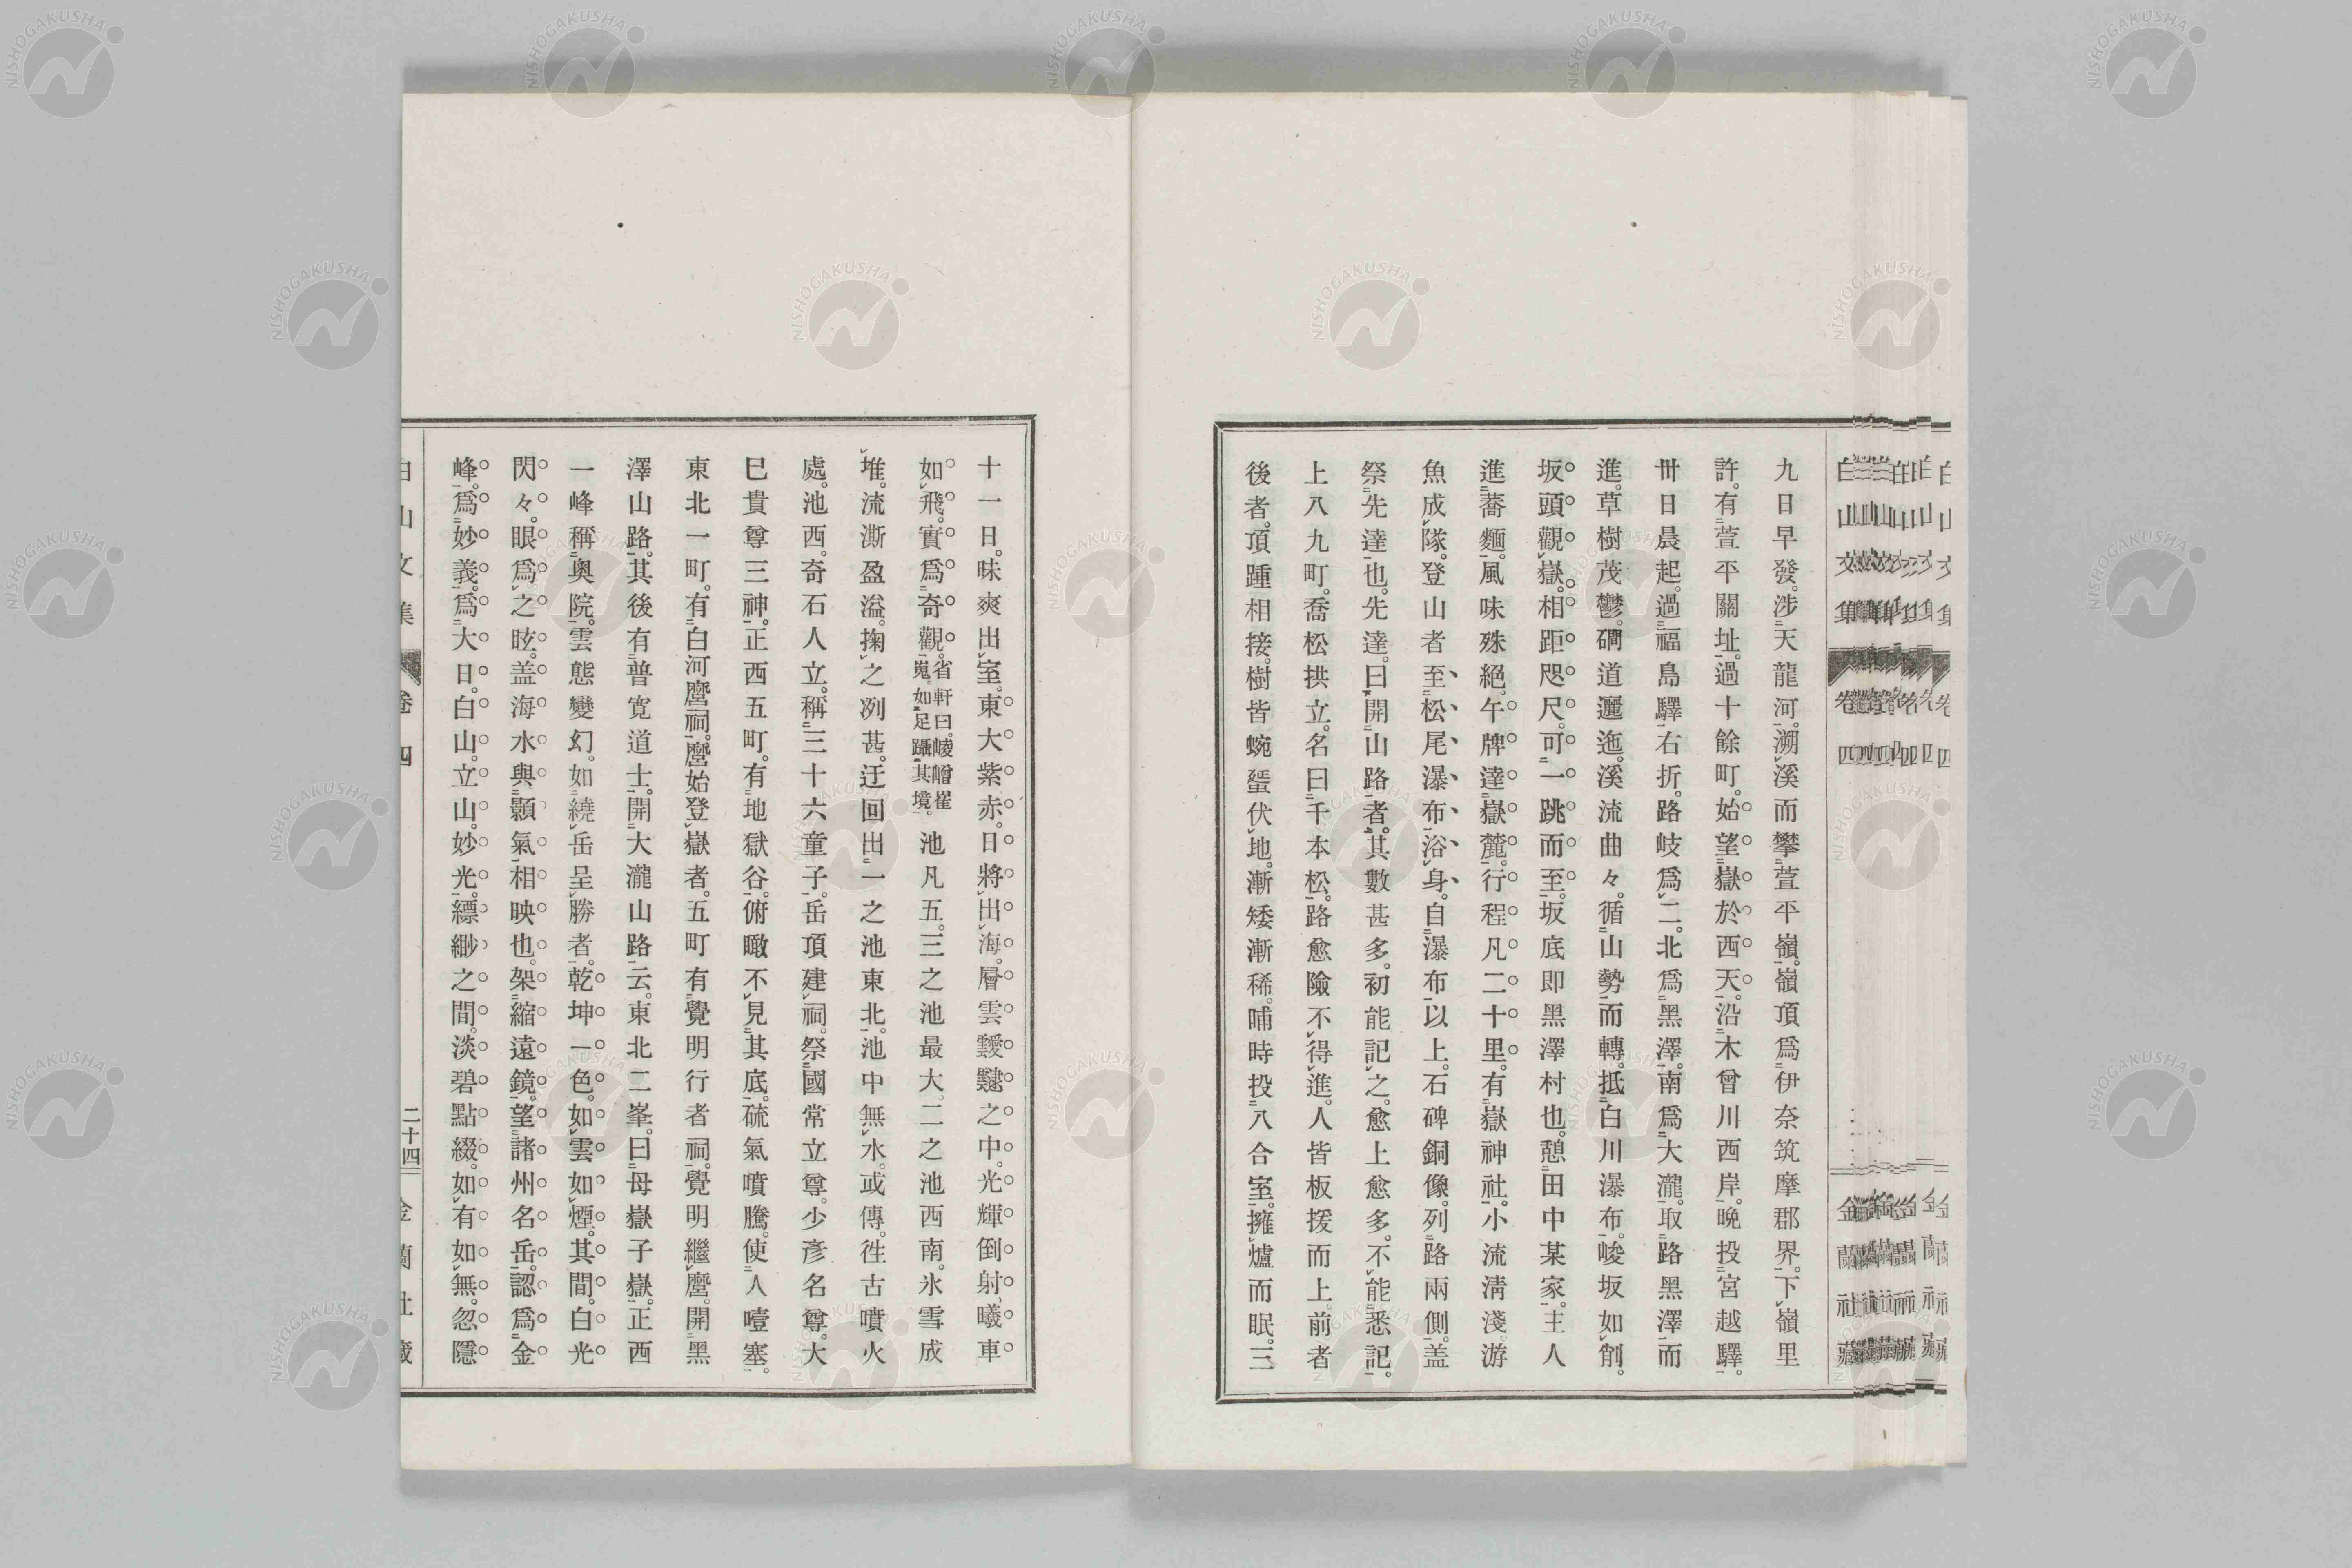 九日早發。涉天龍河。溯溪而攀萱平嶺。嶺頂爲伊奈筑摩郡界。下嶺里
許。有萱平關址。過十餘町。始望嶽於西天。沿木曾川西岸。晚投宮越驛。
卅日晨起。過福島驛右折。路岐爲二。北爲黑澤。南爲大瀧。取路黑澤而
進。草樹茂鬱。磵道邐迤。溪流曲々。循山勢而轉。抵白川瀑布。峻坂如削。
坂頭觀嶽。相距咫尺。可一跳而至。坂底即黑澤村也。憩田中某家。主人
進蕎麵。風味殊絕。午牌達嶽麓。行程凡二十里。有嶽神社。小流淸淺。游
魚成隊。登山者至松尾瀑布浴身。自瀑布以上。石碑銅像。列路兩側。盖
祭先達也。先達。曰開山路者。其數甚多。初能記之。愈上愈多。不能悉記。
上八九町。喬松拱立。名曰千本松。路愈險不得進。人皆板援而上。前者
後者。頂踵相接。樹皆蜿蜑伏地。漸矮漸稀。晡時投八合室。擁爐而眠。三
十一日。昧爽出室。東大紫赤。日將出海。層雲靉靆之中。光輝倒射。曦車
如飛。實爲奇觀。省軒曰。崚嶒崔嵬。如足躡其境。池凡五。三之池最大。二之池西南。氷雪成
堆。流澌盈溢。掬之冽甚。迂回出一之池東北。池中無水。或傳。徃古噴火
處。池西。奇石人立。稱三十六童子。岳頂建祠。祭國常立尊。少彥名尊。大
巳貴尊三神。正西五町。有地獄谷。俯瞰不見其底。硫氣噴騰。使人噎塞。
東北一町。有白河麿祠。麿始登嶽者。五町有覺明行者祠。覺明繼麿。開黑
澤山路。其後有普寬道士。開大瀧山路云。東北二峯。曰母嶽子嶽。正西
一峰稱奧院。雲態變幻。如繞岳呈勝者。乾坤一色。如雲如煙。其間。白光
閃々。眼爲之眩。盖海水與顥氣相映也。架縮遠鏡。望諸州名岳。認爲金
峰。爲妙義。爲大日。白山。立山。妙光。縹緲之間。淡碧點綴。如有如無。忽隱
白山文集 卷四 二十四 金蘭社藏